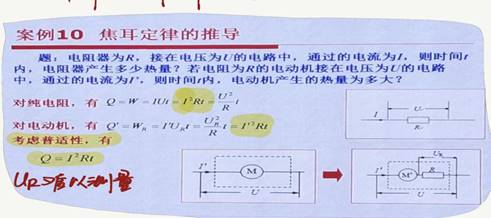 案例10 焦耳定律的推导
题:电阻器为R,接在电压为U的电路中,通过的电流为I,则时间t
内,电阻器产生多少热量?若电阻为R的电动机接在电压为U的电路
中,通过的电流为I',则时间t内,电动机产生的热量为多大?
对纯电阻,有 Q=W=IUt=I²Rt=U²/R t
对电动机,有 Q'=W_R=I'U_Rt=U_R²/R t=I'²Rt
考虑普适性,有
Q=I²Rt
U_R难以测量
I U R
I' M U
I' M' R U_R U